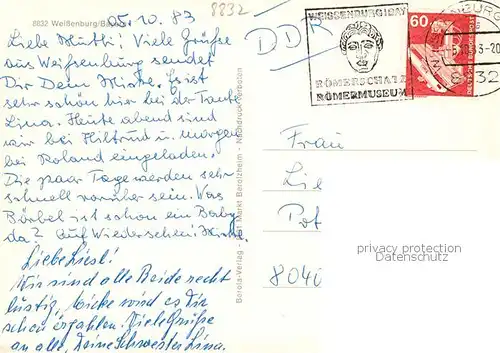 8832
8832 Weißenburg/Bayern
05.10.83
Liebe Mutti! Viele Grüße
aus Weißenburg sendet
Dir Dein Mirko. Es ist
sehr schön hier bei der Tante
Lina. Heute abend sind
wir bei Hiltrud u. morgen
bei Roland eingeladen.
Die paar Tage werden sehr
schnell vorüber sein. Was
Bärbel ist schon ein Baby
da? Auf Wiedersehen! Mirko.
Liebe Liesl!
Wir sind alle Beide recht
lustig, Micke wird es Dir
schon erzählen. Viele Grüße
an alle, Deine Schwester Lina.
Barola-Verlag
Markt Berolzheim - Nachdruck verboten
DDR
WEISSENBURG i BAY
RÖMERSCHATZ
RÖMERMUSEUM
60
DEUTSCHE BUNDESPOST
Frau
Lie
Pot
8040
privacy protection
Datenschutz